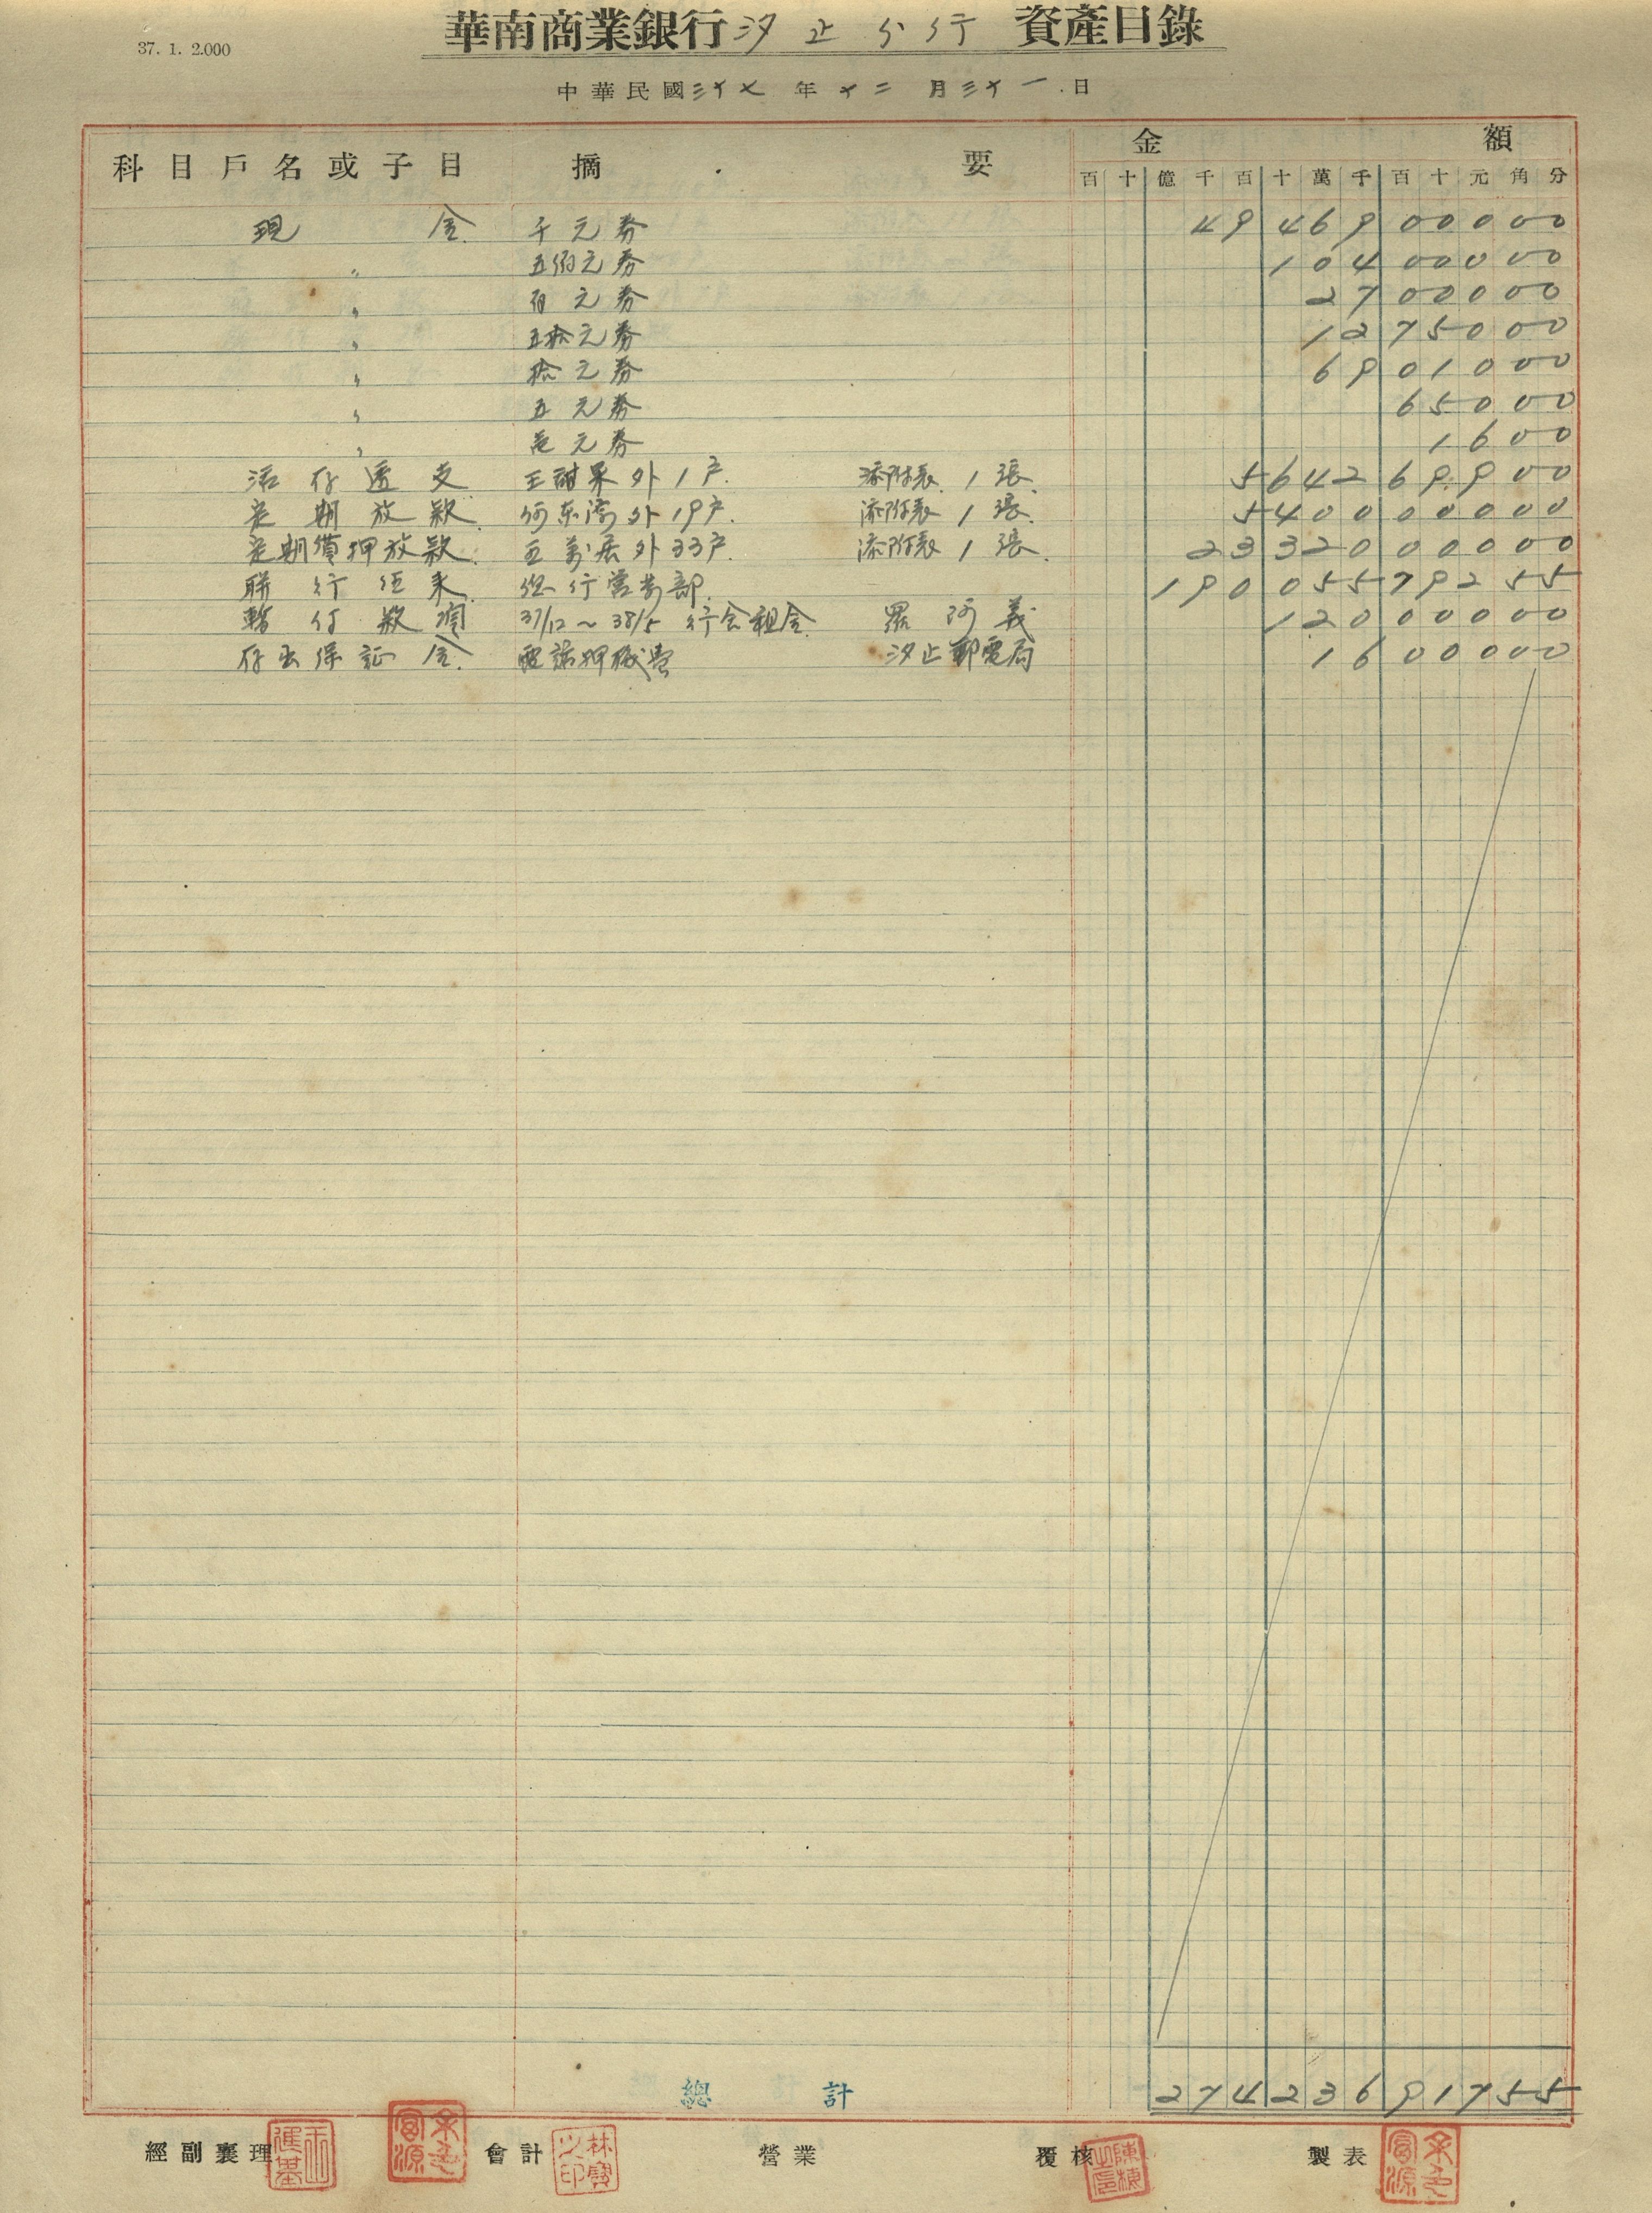 37. 1. 2.000
華南商業銀行汐止分行 資產目錄
中華民國三十七年十二月三十一日
科目戶名或子目 摘要 金額
百十億千百十萬千百十元角分
現金 千元券 4946900000
〃 五佰元券 10400000
〃 百元券 2700000
〃 五拾元券 1275000
〃 拾元券 6901000
〃 五元券 65000
〃 壱元券 1600
活存透支 王甜果外1戶 添附表1張 564269900
定期放款 何東濤外19戶 添附表1張 540000000
定期質押放款 王萬居外33戶 添附表1張 2332000000
聯行往來 總行營業部 19005579255
暫付款項 37/12~38/5 行舍租金 羅阿義 12000000
存出保証金 電話押機費 汐止郵電局 1600000
總計 27423691755
經副襄理 會計 營業 覆核 製表